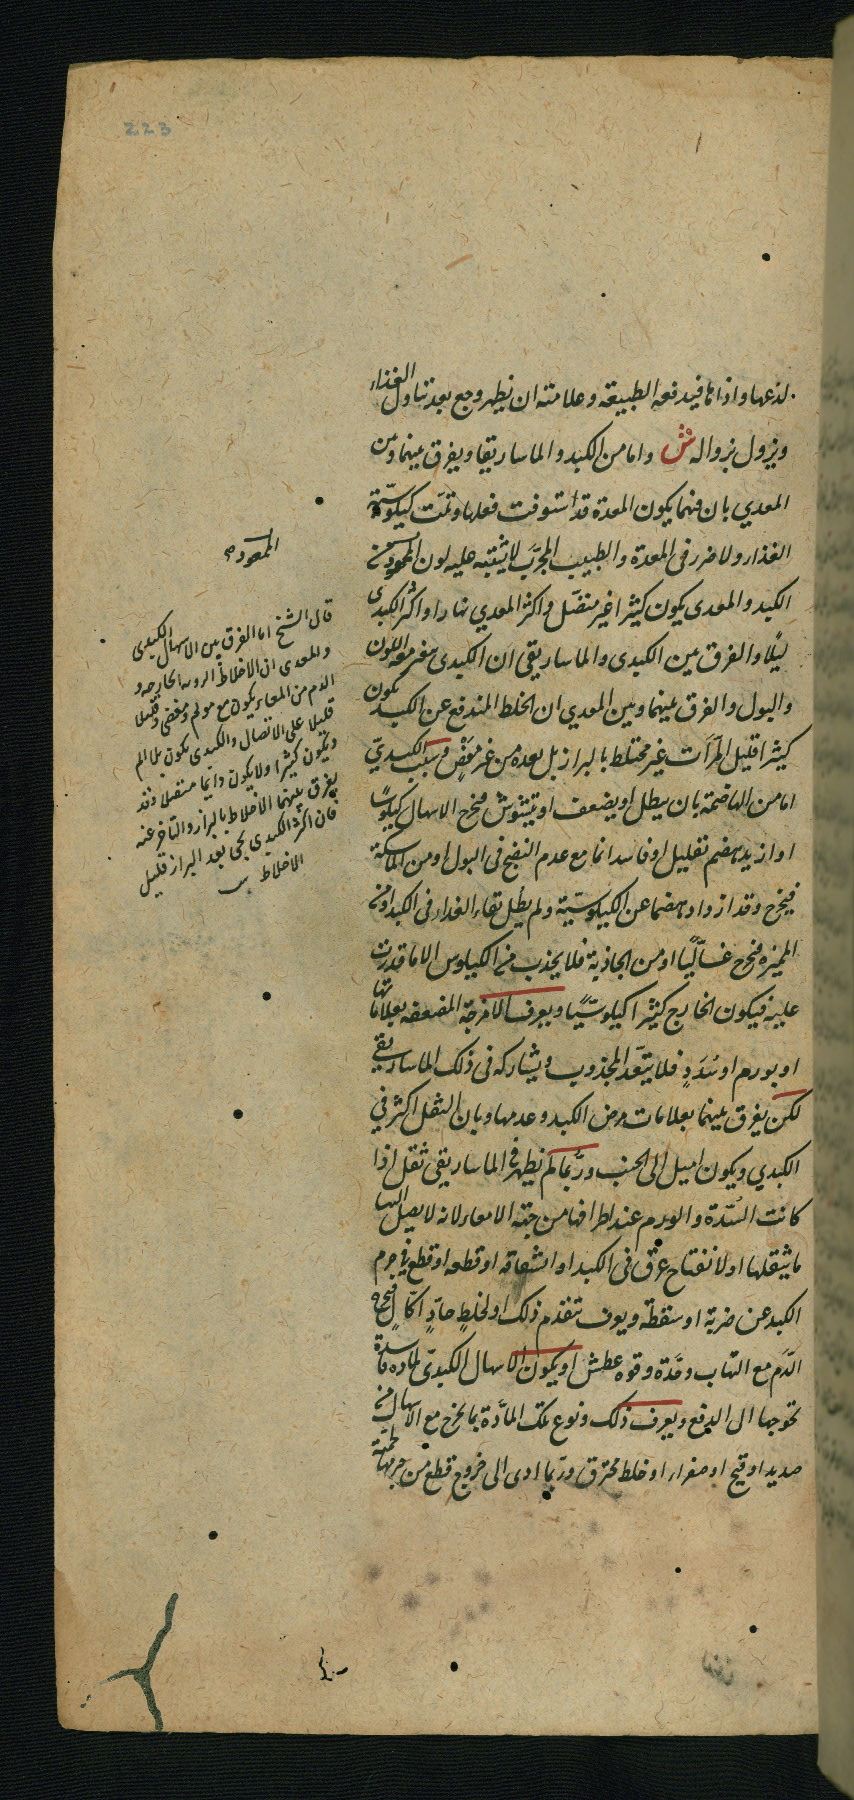 223
لذعها واذاها فيدفعه الطبيعة وعلامته ان يظهر وجع بعد تناول الغذاء
ويزول بزواله ش واما من الكبد والماساريقا ويفرق بينهما ومن
المعدي بان فيهما يكون المعدة قد استوفت فعلها وتمت كيلوسية
الغذاء ولا ضرر في المعدة والطبيب المجرب لا يشتبه عليه لون
الكبد والمعدى يكون كثيرا غير متصل واكثر المعدي نهارا واكثر الكبدى
ليلا والفرق بين الكبدى والماساريقى ان الكبدى اللون
والبول والفرق بينهما وبين المعدي ان الخلط المندفع عن الكبد يكون
كثيرا قليل المرات غير مختلط بالبراز بل بعده من غير مغص وسبب الكبدي
اما من الهاضمة بان يبطل او يضعف او يتشوش فيخرج الاسهال كيلوسا
او ازيد بهضم قليل او فاسدا نما مع عدم النضج في البول او من الماسكة
فيخرج وقد ازداد هضما عن الكيلوسية ولم يطل بقاء الغذاء في الكبد او من
المميزة فيخرج غساليا او من الجاذبة فلا يجذب من الكيلوس الا ما قدرت
عليه فيكون الخارج كثيرا كيلوسيا ويعرف الامزجة المضعفة بعلاماتها
او بورم او سدد فلا ينفذ المجذوب ويشاركه في ذلك الماساريقي
لكن يفرق بينهما بعلامات مرض الكبد وعدمها وبان الثقل اكثر في
الكبدي ويكون اميل الى الجنب وربما لم يظهر في الماساريقى ثقل اذا
كانت السدة والورم عند اطرافها من جهة الامعاء لانه لا يصل اليها
ما يثقلها او لانفتاح عرق في الكبد او انشقاقه او قطعه او قطع في جرم
الكبد عن ضربة او سقطة ويعرف بتقدم ذلك او لخلط حاد اكال فيخرج
الدم مع التهاب وحدة وقوة عطش او يكون الاسهال الكبدى لمادة فاسدة
تحوجها الى الدفع ويعرف ذلك ونوع تلك المادة بما يخرج مع الاسهال من
صديد او قيح او صفراء او خلط محترق وربما ادى الى خروج قطع من جرمها لحمية
قال الشيخ اما الفرق بين الاسهال الكبدى
والمعدى ان الاخلاط الردية الخارجة و
الدم من المعاء يكون مع مولم ومغص وقليلا
قليلا على الاتصال والكبدى يكون بلا الم
ويكون كثيرا ولا يكون دايما متصلا وقد
يفرق بينهما الاخلاط بالبراز والتاخر عنه
فان اكثر الكبدى يجي بعد البراز قليل
الاخلاط